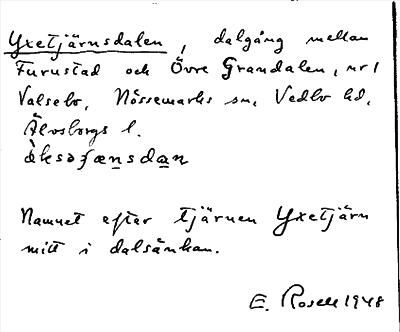 Yxetjärnsdalen, dalgång mellan
Furustad och Övre Grandalen, nr 1
Valsebo, Nössemarks sn, Vedbo hd,
Älvsborgs l.
Namnet efter tjärnen Yxetjärn
mitt i dalsänkan.
E. Rosell 1948